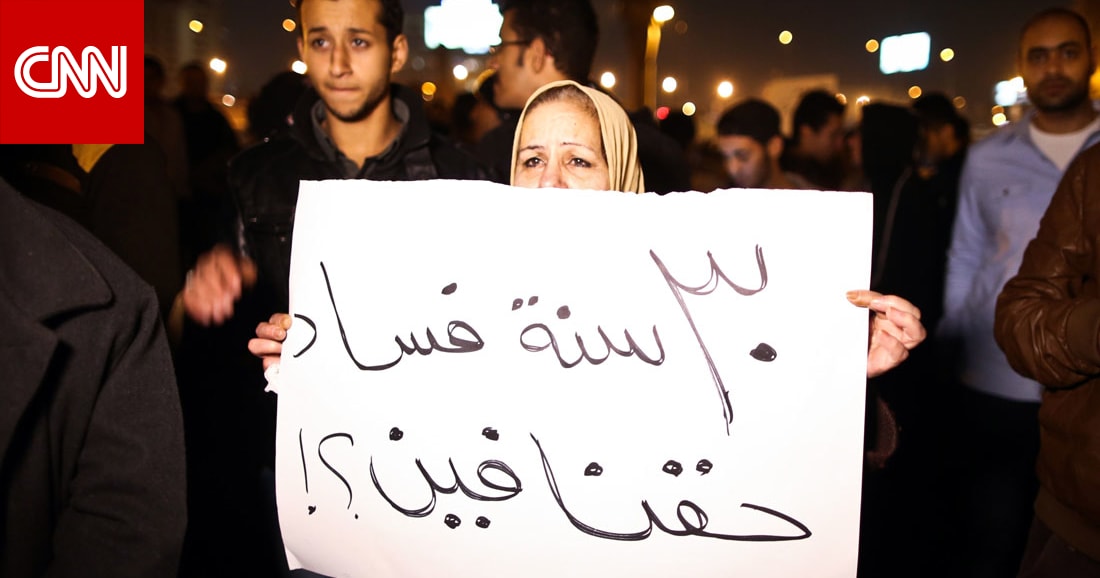 CNN
٣٠ سنة فساد
حقنا فين؟!